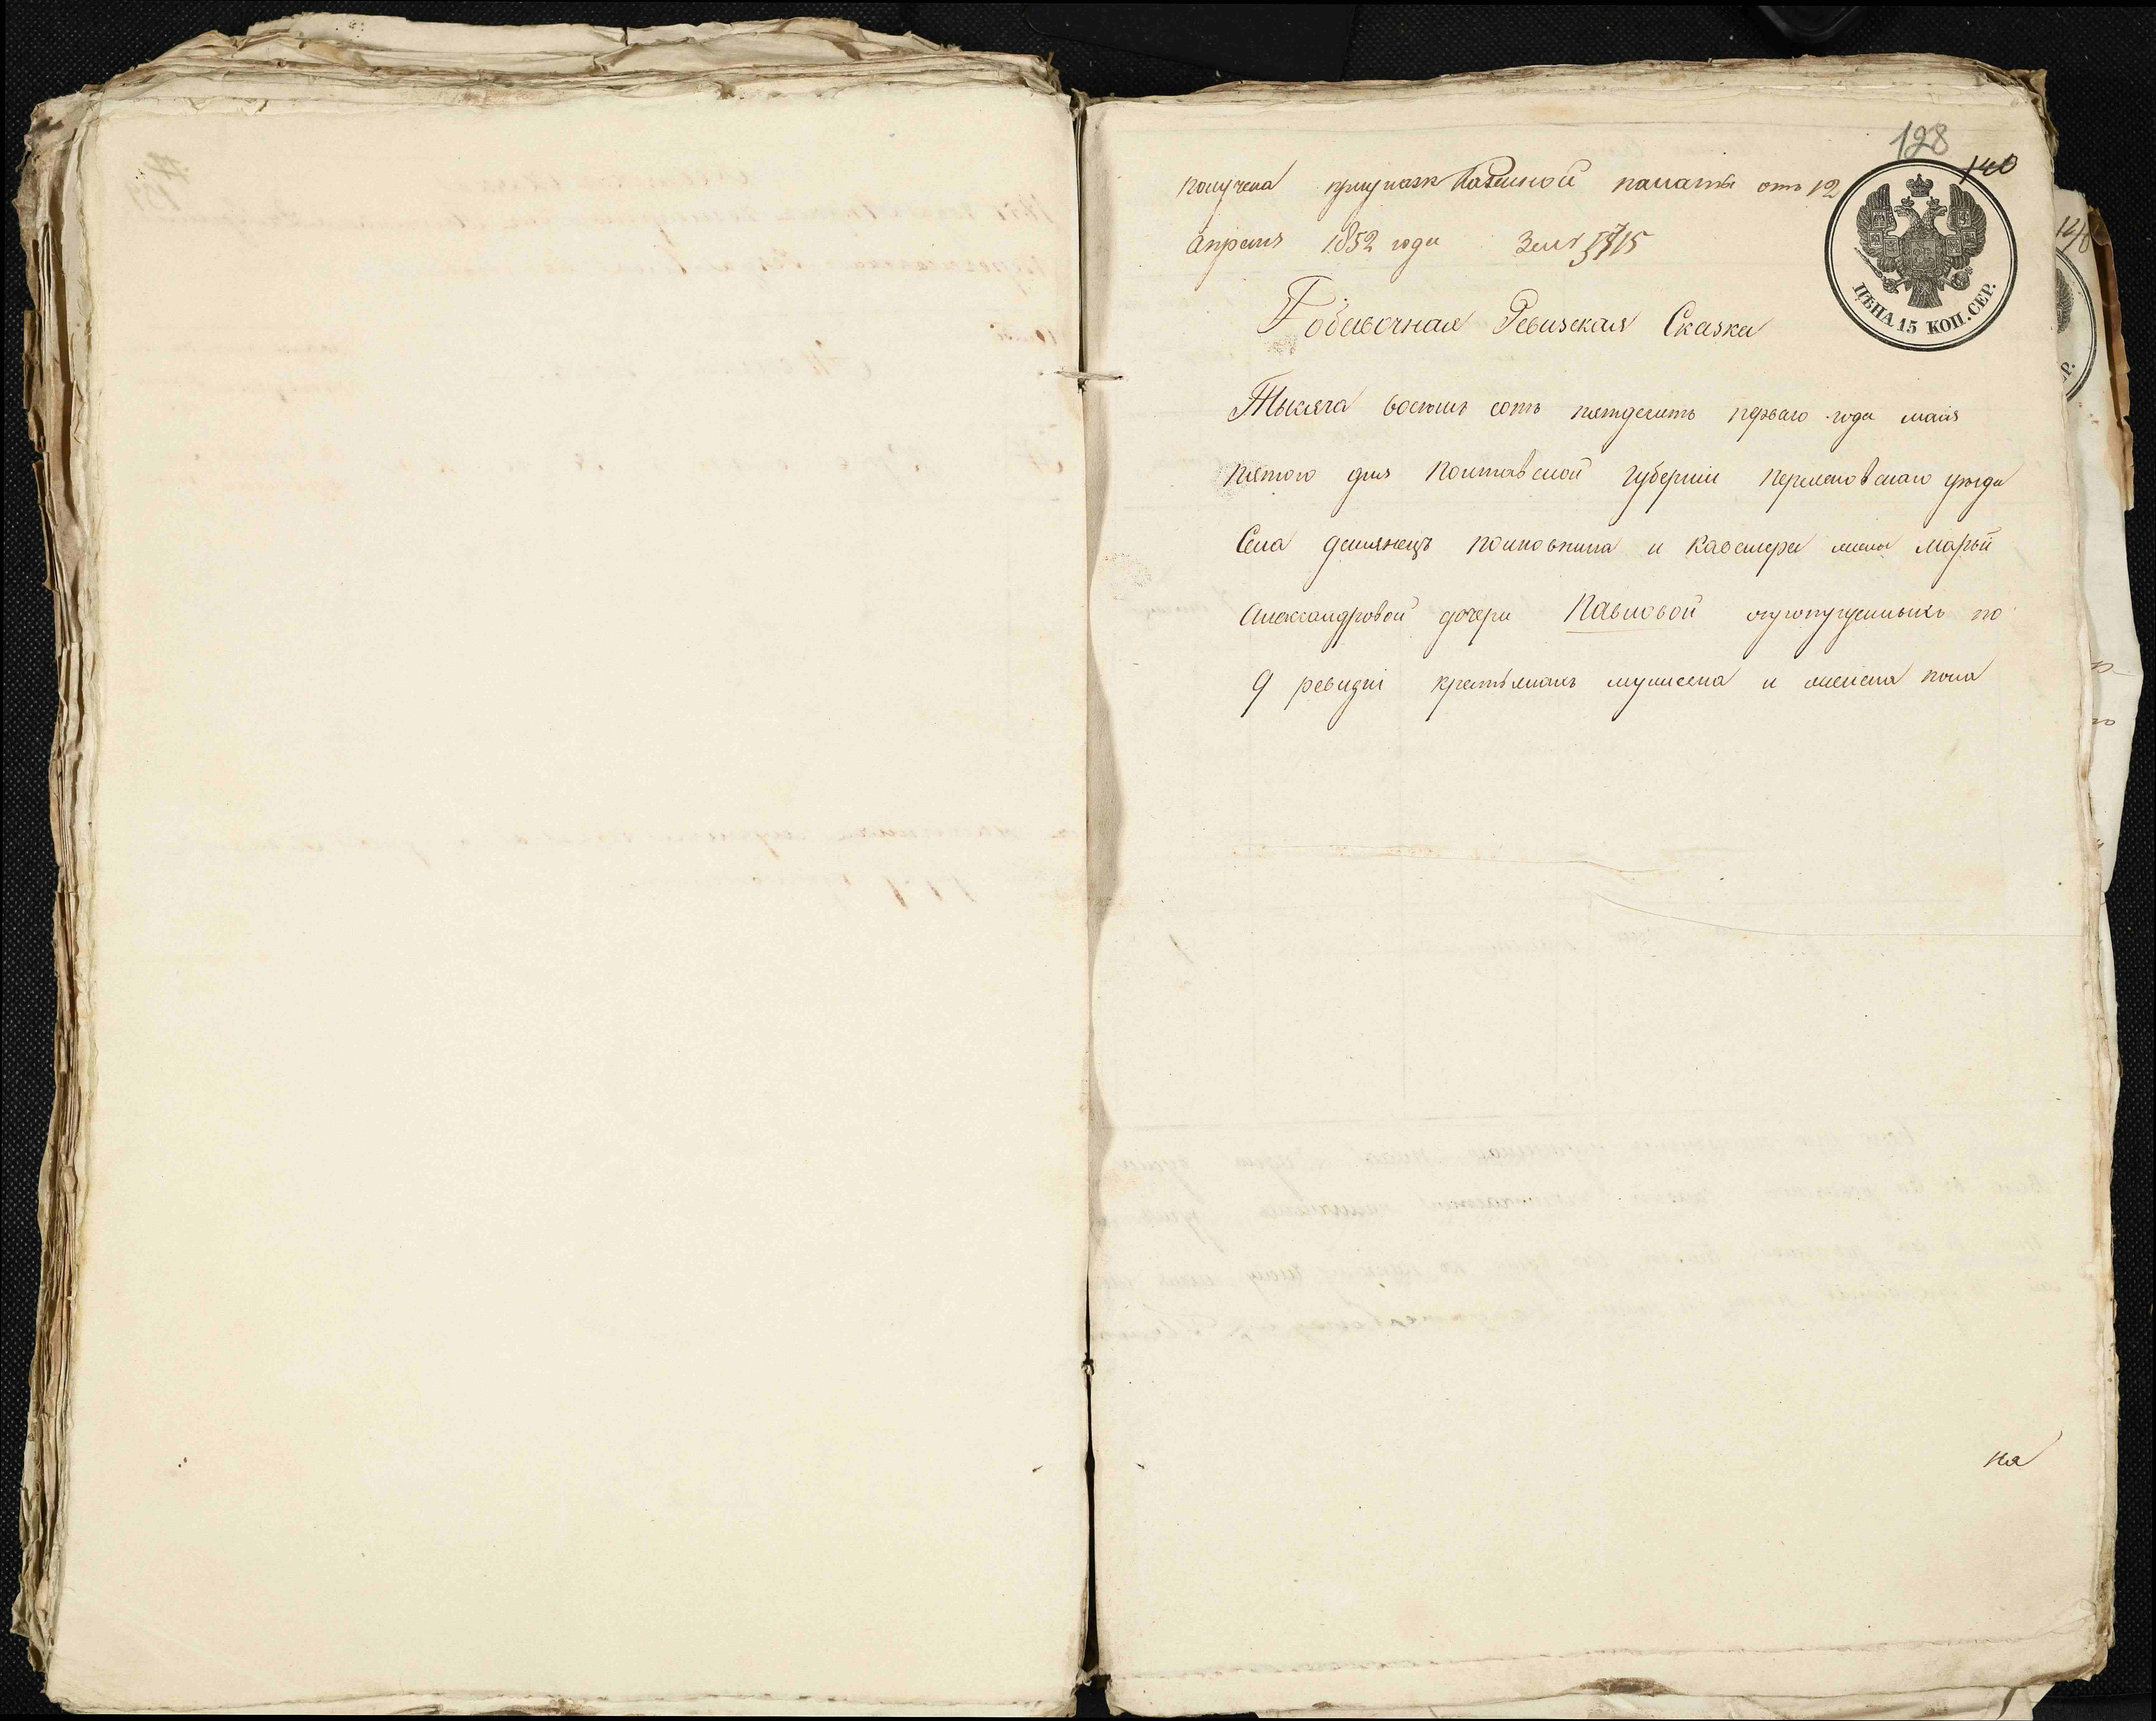 128
140
получена при указе Казенной палаты отъ 12
апреля 1852 года За № 5715
ЦѢНА 15 КОП. СЕР.
Добавочная Ревизская Сказка
Тысяча восемь сотъ пятдесятъ перваго года маія
пятого дня Полтавской губерніи Переяславскаго уезда
Села демянецъ полковника и кавалера жены марьи
Александровой дочери Павловой о пропущенныхъ по
9 ревизіи крестьянахъ мужеска и женска пола
на